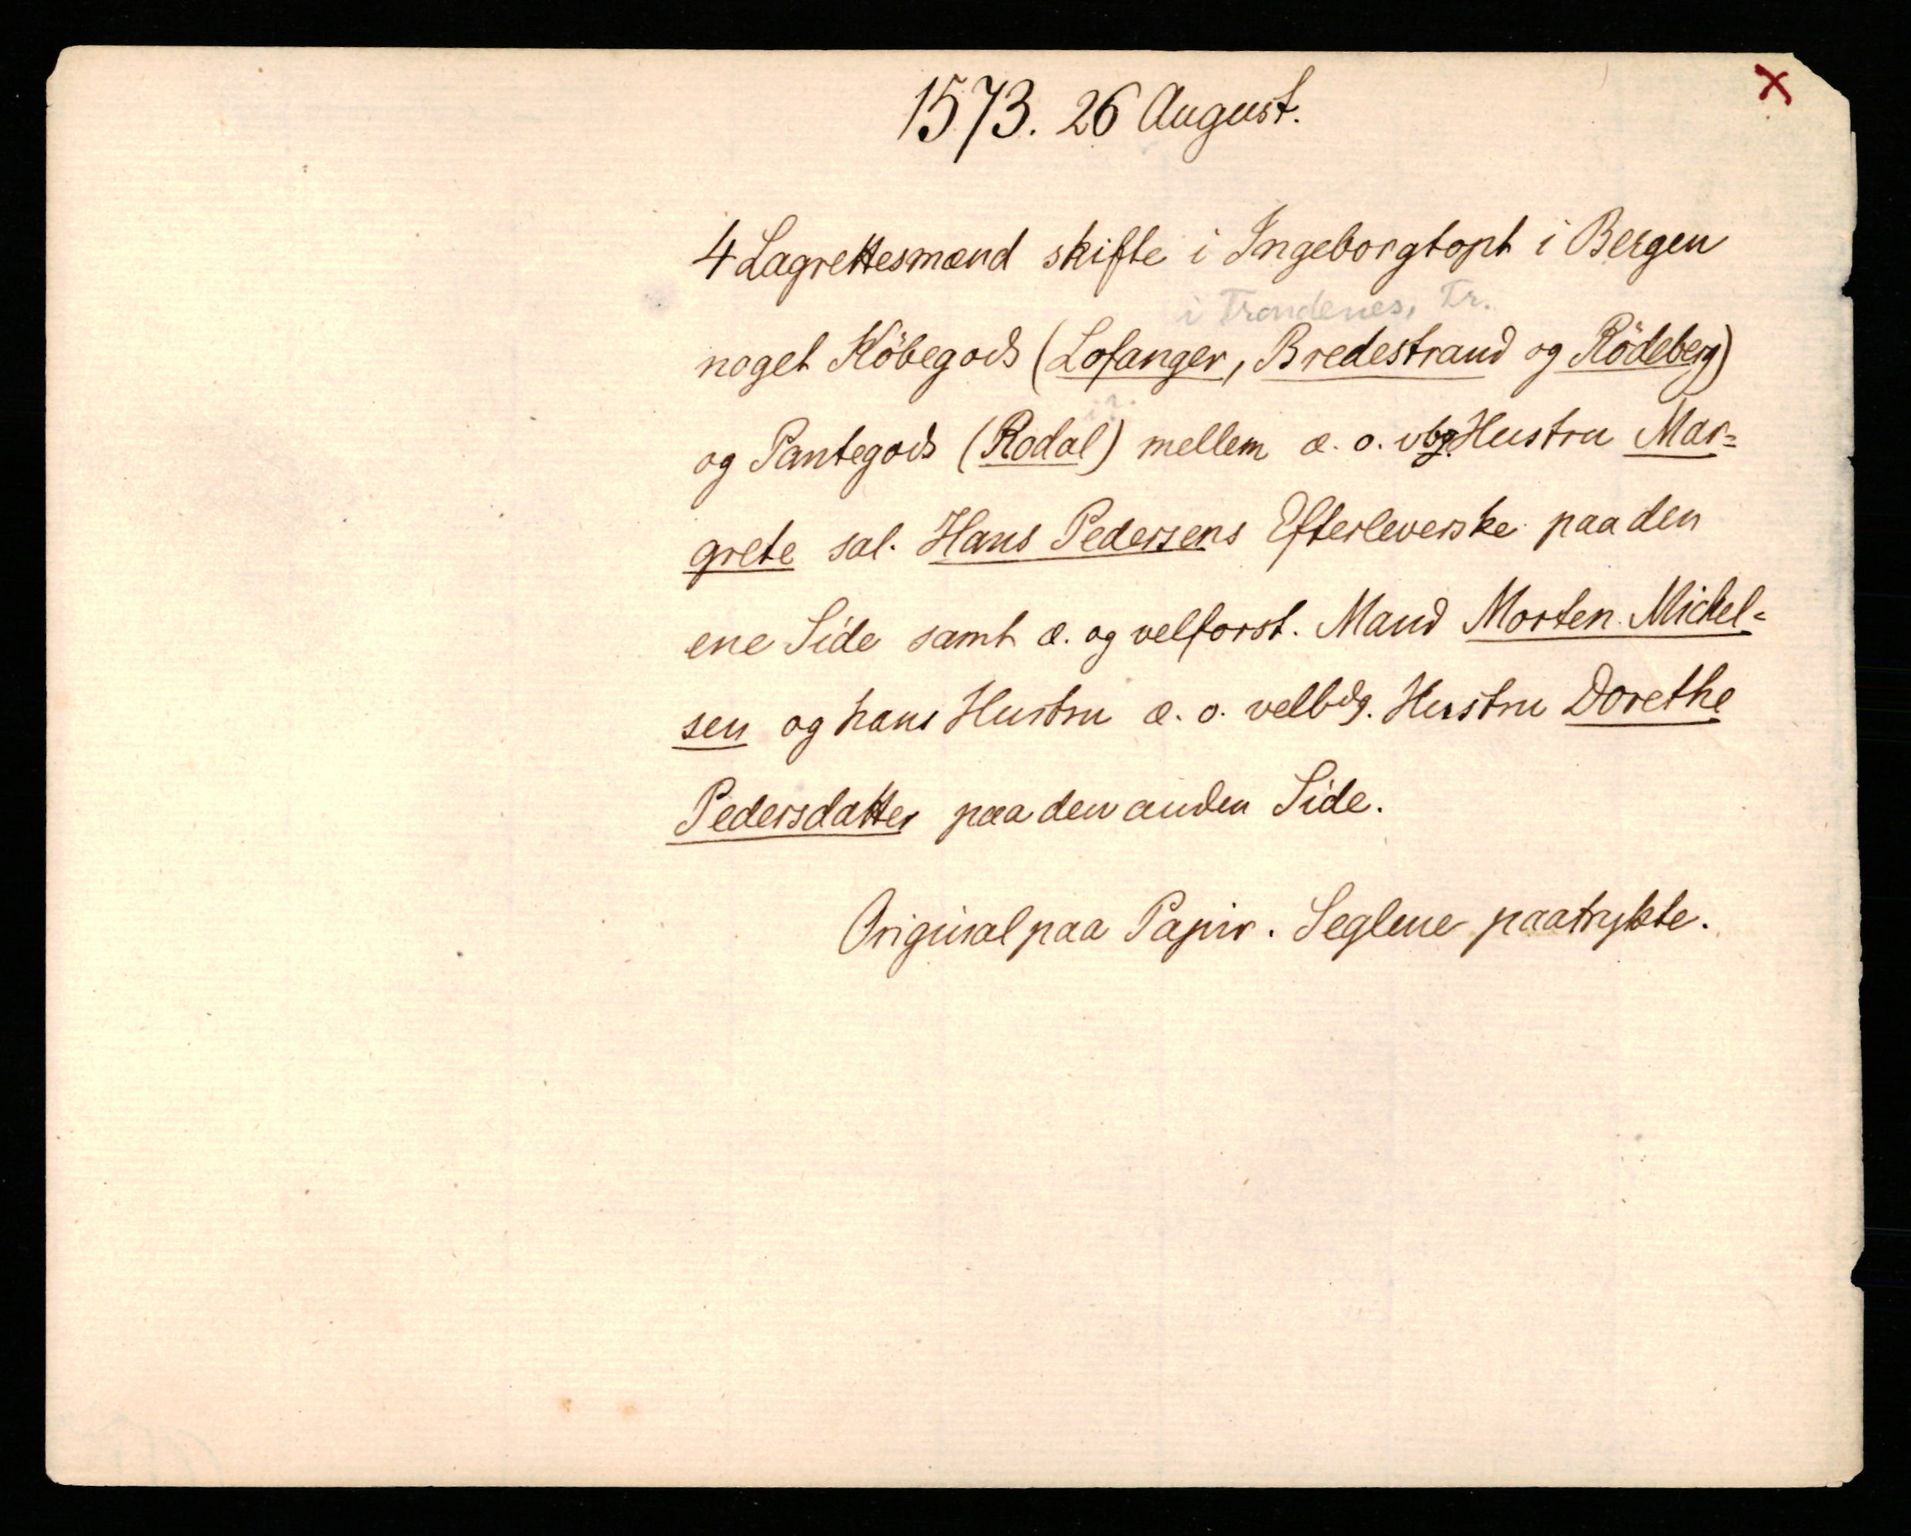 1573. 26 August.
4 Lagrettesmænd skifte i Ingeborgtopt i Bergen
i Trondenes, Tr.
nogetKöbegods (Lofanger, Bredestrand og Rödeberg)
og Pantegods (Rodal) mellem æ. o. vbg. Hustru Mar=
grete sal. Hans Pedersens Efterleverske paa den
ene Side samt æ. og velforst. Mand Morten Mickel=
sen og hans Hustru æ. o. velbdg. Hustru Dorethe
Pedersdatter paa den anden Side.
Original paa Papir. Seglene paatrykte.